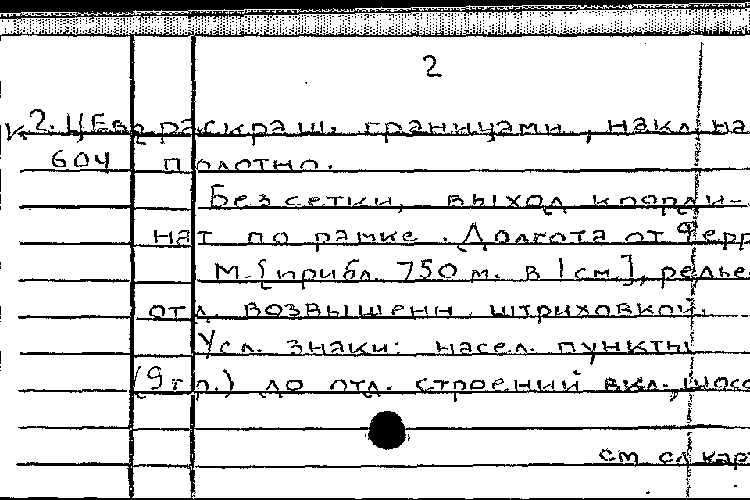 2
К 2. ЦЕв раскраш. границами, накл на
604 полотно.
Без сетки, выход коорди-
нат по рамке. Долгота от Ферр
М. [прибл. 750 м. в 1 см.], релье
отд. возвышенн. штриховкой.
Усл. знаки: насел. пункты
(9 гр.) до отд. строений вкл., шосс
см сл карт